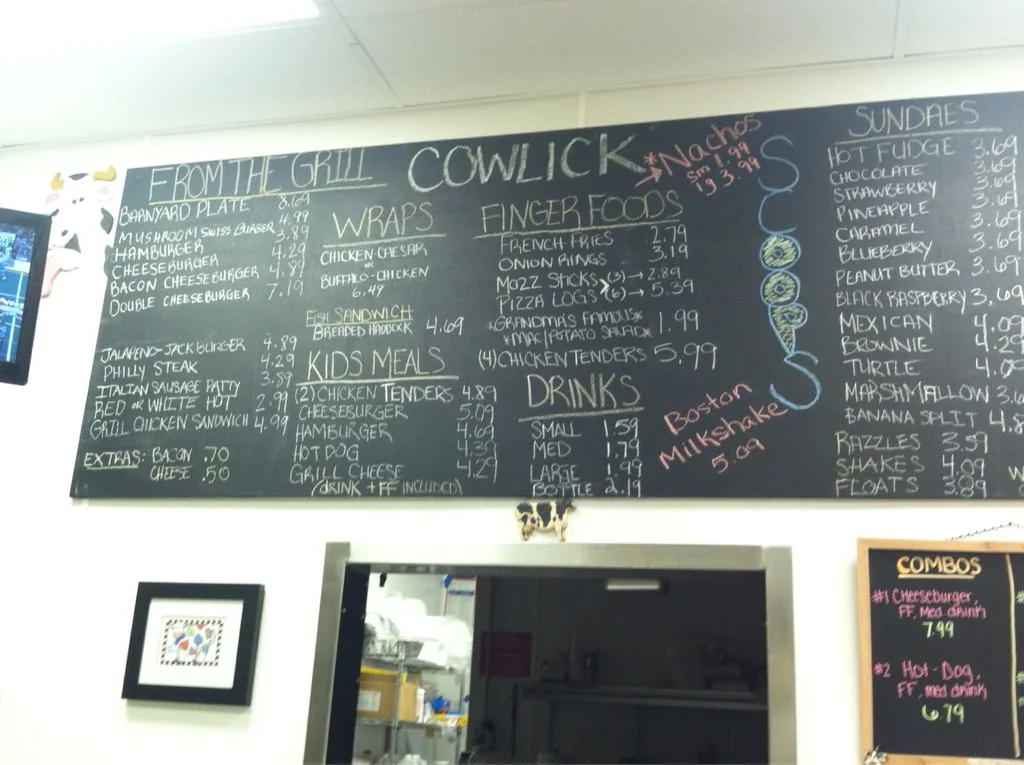 FROM THE GRILL
BARNYARD PLATE 8.69
MUSHROOM SWISS BURGER 4.99
HAMBURGER 3.89
CHEESEBURGER 4.29
BACON CHEESEBURGER 4.89
DOUBLE CHEESEBURGER 7.19
JALAPENO-JACK BURGER 4.89
PHILLY STEAK 4.29
ITALIAN SAUSAGE PATTY 3.89
RED OR WHITE HOT 2.99
GRILL CHICKEN SANDWICH 4.99
EXTRAS: BACON .70
CHEESE .50
COWLICK
WRAPS
CHICKEN CAESAR
OR
BUFFALO-CHICKEN
6.49
FISH SANDWICH
BREADED HADDOCK 4.69
KIDS MEALS
(2) CHICKEN TENDERS 4.89
CHEESEBURGER 5.09
HAMBURGER 4.69
HOT DOG 4.39
GRILL CHEESE 4.29
(DRINK + FF INCLUDED)
FINGER FOODS
FRENCH FRIES 2.79
ONION RINGS 3.19
MOZZ STICKS (3) → 2.89
PIZZA LOGS (6) → 5.39
*GRANDMA'S FAMOUS*
*MAC/POTATO SALAD* 1.99
(4) CHICKEN TENDERS 5.99
DRINKS
SMALL 1.59
MED 1.79
LARGE 1.99
BOTTLE 2.19
*Nachos
sm 1.99
lg 3.99
SCOOPS
Boston
Milkshake
5.09
SUNDAES
HOT FUDGE 3.69
CHOCOLATE 3.69
STRAWBERRY 3.69
PINEAPPLE 3.69
CARAMEL 3.69
BLUEBERRY 3.69
PEANUT BUTTER 3.69
BLACK RASPBERRY 3.69
MEXICAN 4.09
BROWNIE 4.29
TURTLE 4.0
MARSHMALLOW 3.6
BANANA SPLIT 4.8
RAZZLES 3.59
SHAKES 4.09
FLOATS 3.89
COMBOS
#1 Cheeseburger,
FF, med drink
7.99
#2 Hot-Dog,
FF, med drink
6.79